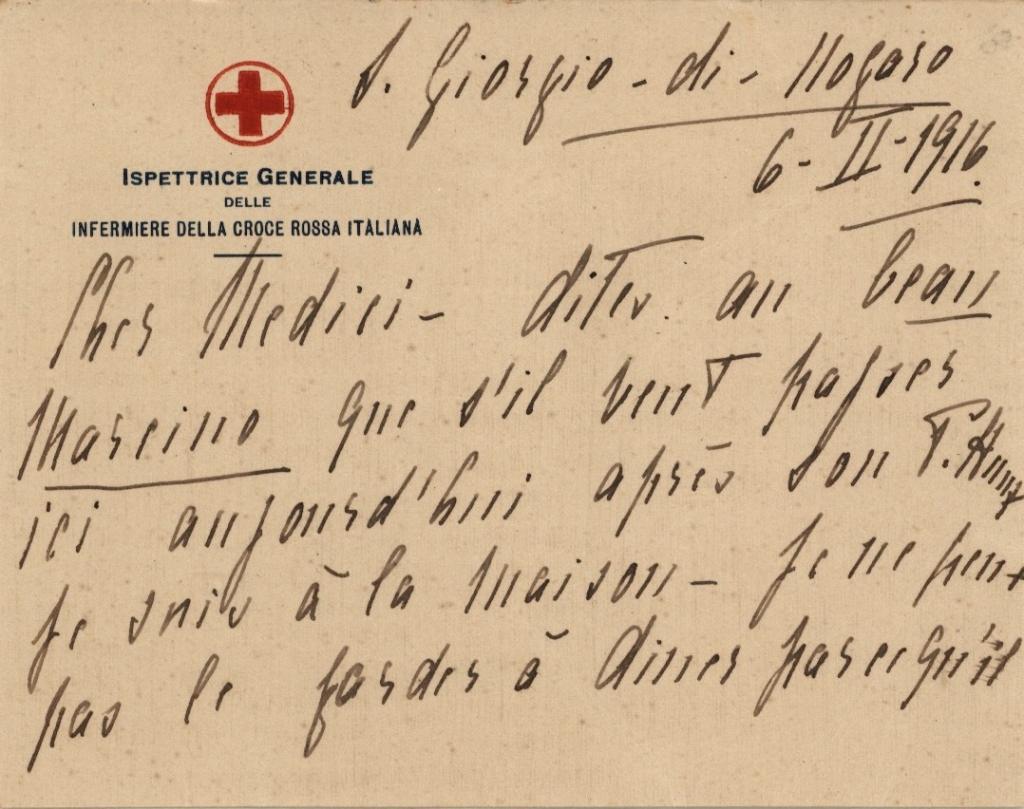 S. Giorgio-di-Nogaro
6-II-1916.
ISPETTRICE GENERALE
DELLE
INFERMIERE DELLA CROCE ROSSA ITALIANA
Cher Medici- dites au beau
Mareino que s'il veut passer
ici aujourd'hui après son T.
je suis à la maison- Je ne peux
pas le garder à diner parcequ'il